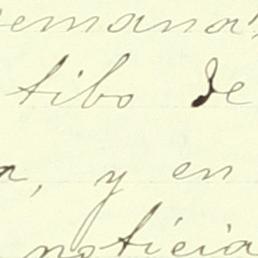 semana,
tibo de
a, y en
noticia